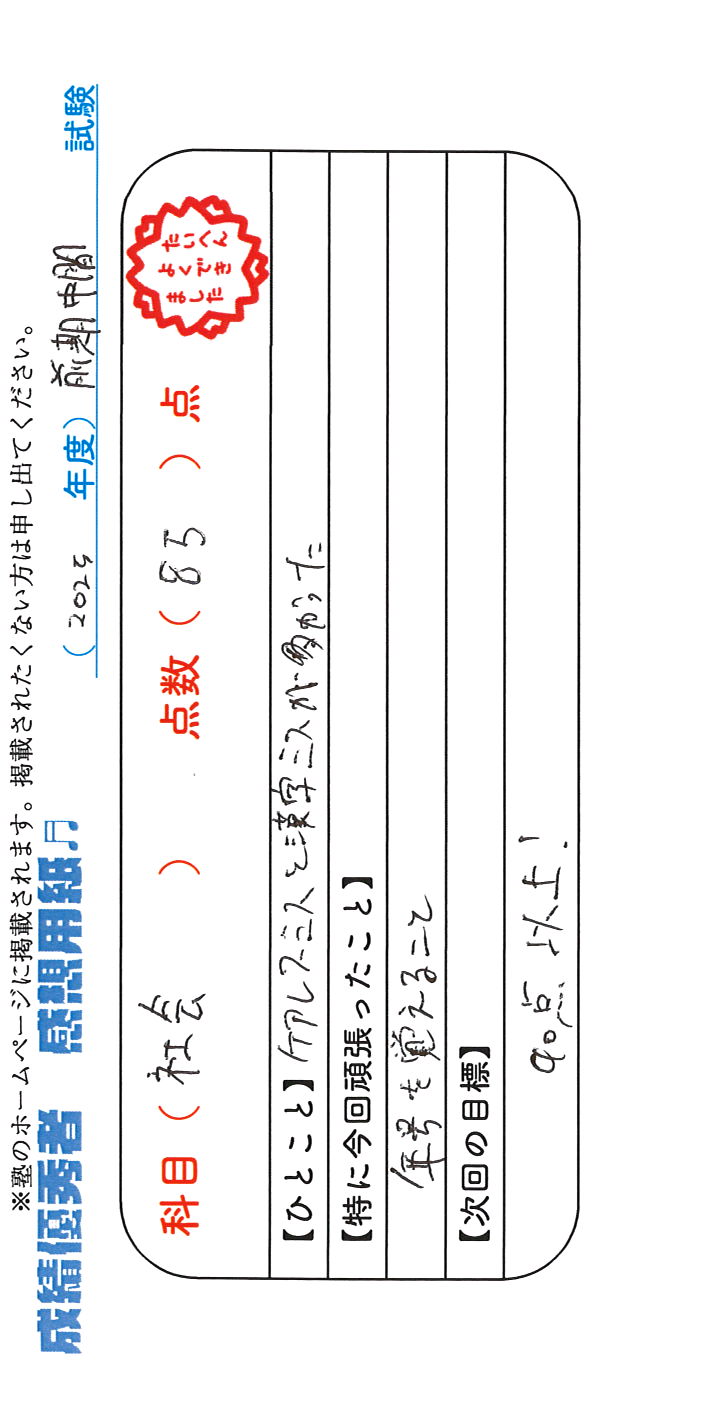 ※塾のホームページに掲載されます。掲載されたくない方は申し出てください。
成績優秀者 感想用紙♬ (2025 年度) 前期中間 試験
科目(社会) 点数(85)点
たいへん
よくでき
ました
【ひとこと】ケアレスミスと漢字ミスが多かった
【特に今回頑張ったこと】
年号を覚えること
【次回の目標】
90点以上!